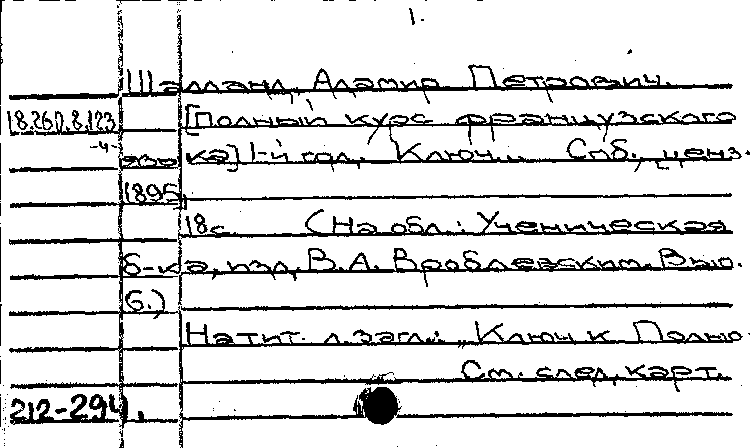 1.
Шалланд, Адамир Петрович.
18.260.8.123 [Полный курс французского
-4- языка] 1-й год. Ключ... Спб., ценз.
1895.
18с. (На обл.: Ученическая
б-ка, изд. В.А. Вроблевским. Вып.
6.)
На тит. л. загл.: „Ключ к Полно-
См. след. карт.
212-294.